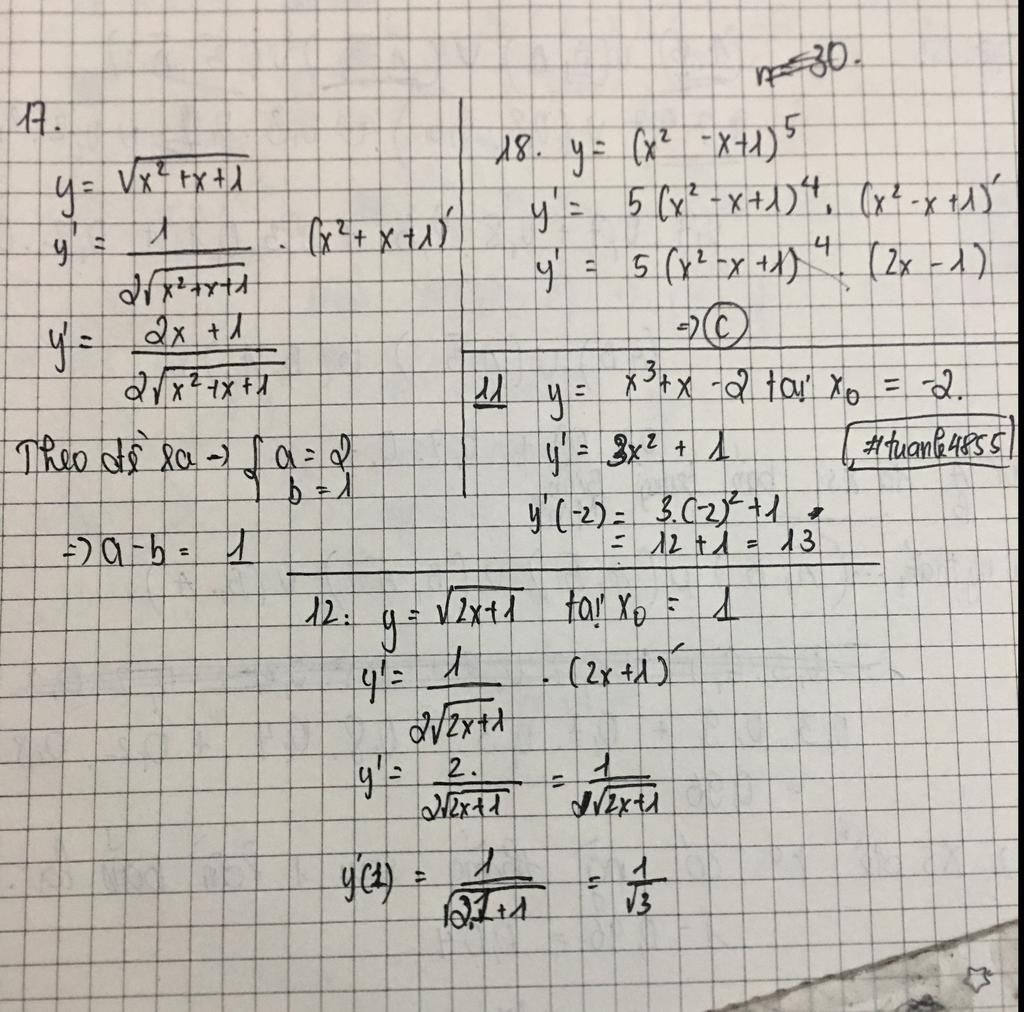 n = 30.
17.
y = √(x² + x + 1)
y' = 1/(2√(x² + x + 1)) · (x² + x + 1)'
y' = (2x + 1)/(2√(x² + x + 1))
Theo đề ra → { a = 2
b = 1
=> a - b = 1
18. y = (x² - x + 1)⁵
y' = 5 (x² - x + 1)⁴ . (x² - x + 1)'
y' = 5 (x² - x + 1)⁴ . (2x - 1)
=> C
11 y = x³ + x - 2 tại x₀ = -2.
y' = 3x² + 1
#tuanle4855
y'(-2) = 3.(-2)² + 1
= 12 + 1 = 13
12: y = √(2x+1) tại x₀ = 1
y' = 1/(2√(2x+1)) . (2x+1)'
y' = 2./(2√(2x+1)) = 1/√(2x+1)
y'(1) = 1/√(2.1+1) = 1/√3